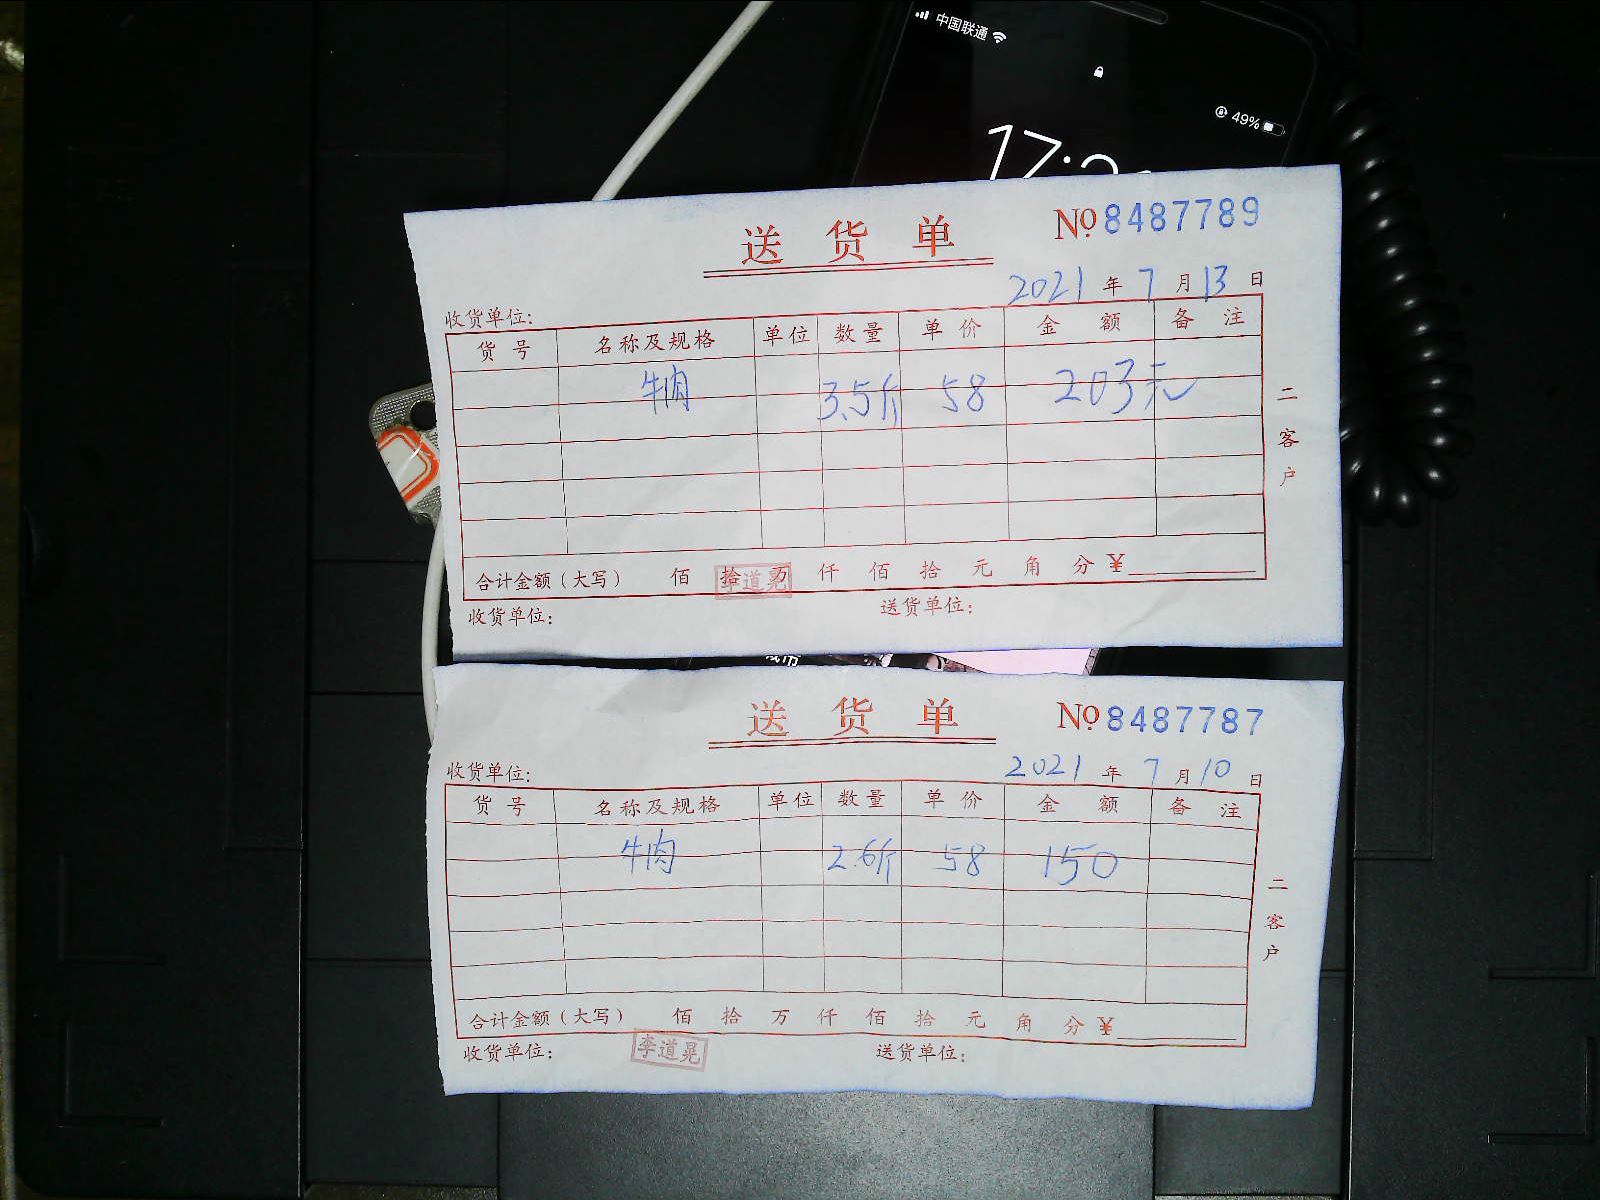 中国联通
49%
送货单
No 8487789
2021年7月13日
收货单位:
货号 名称及规格 单位 数量 单价 金额 备注
牛肉 3.5斤 58 203元
二客户
合计金额(大写) 佰 拾 万 仟 佰 拾 元 角 分 ¥
李道晃
收货单位: 送货单位:
送货单
No 8487787
收货单位: 2021年7月10日
货号 名称及规格 单位 数量 单价 金额 备注
牛肉 2.6斤 58 150
二客户
合计金额(大写) 佰 拾 万 仟 佰 拾 元 角 分 ¥
收货单位: 李道晃 送货单位: